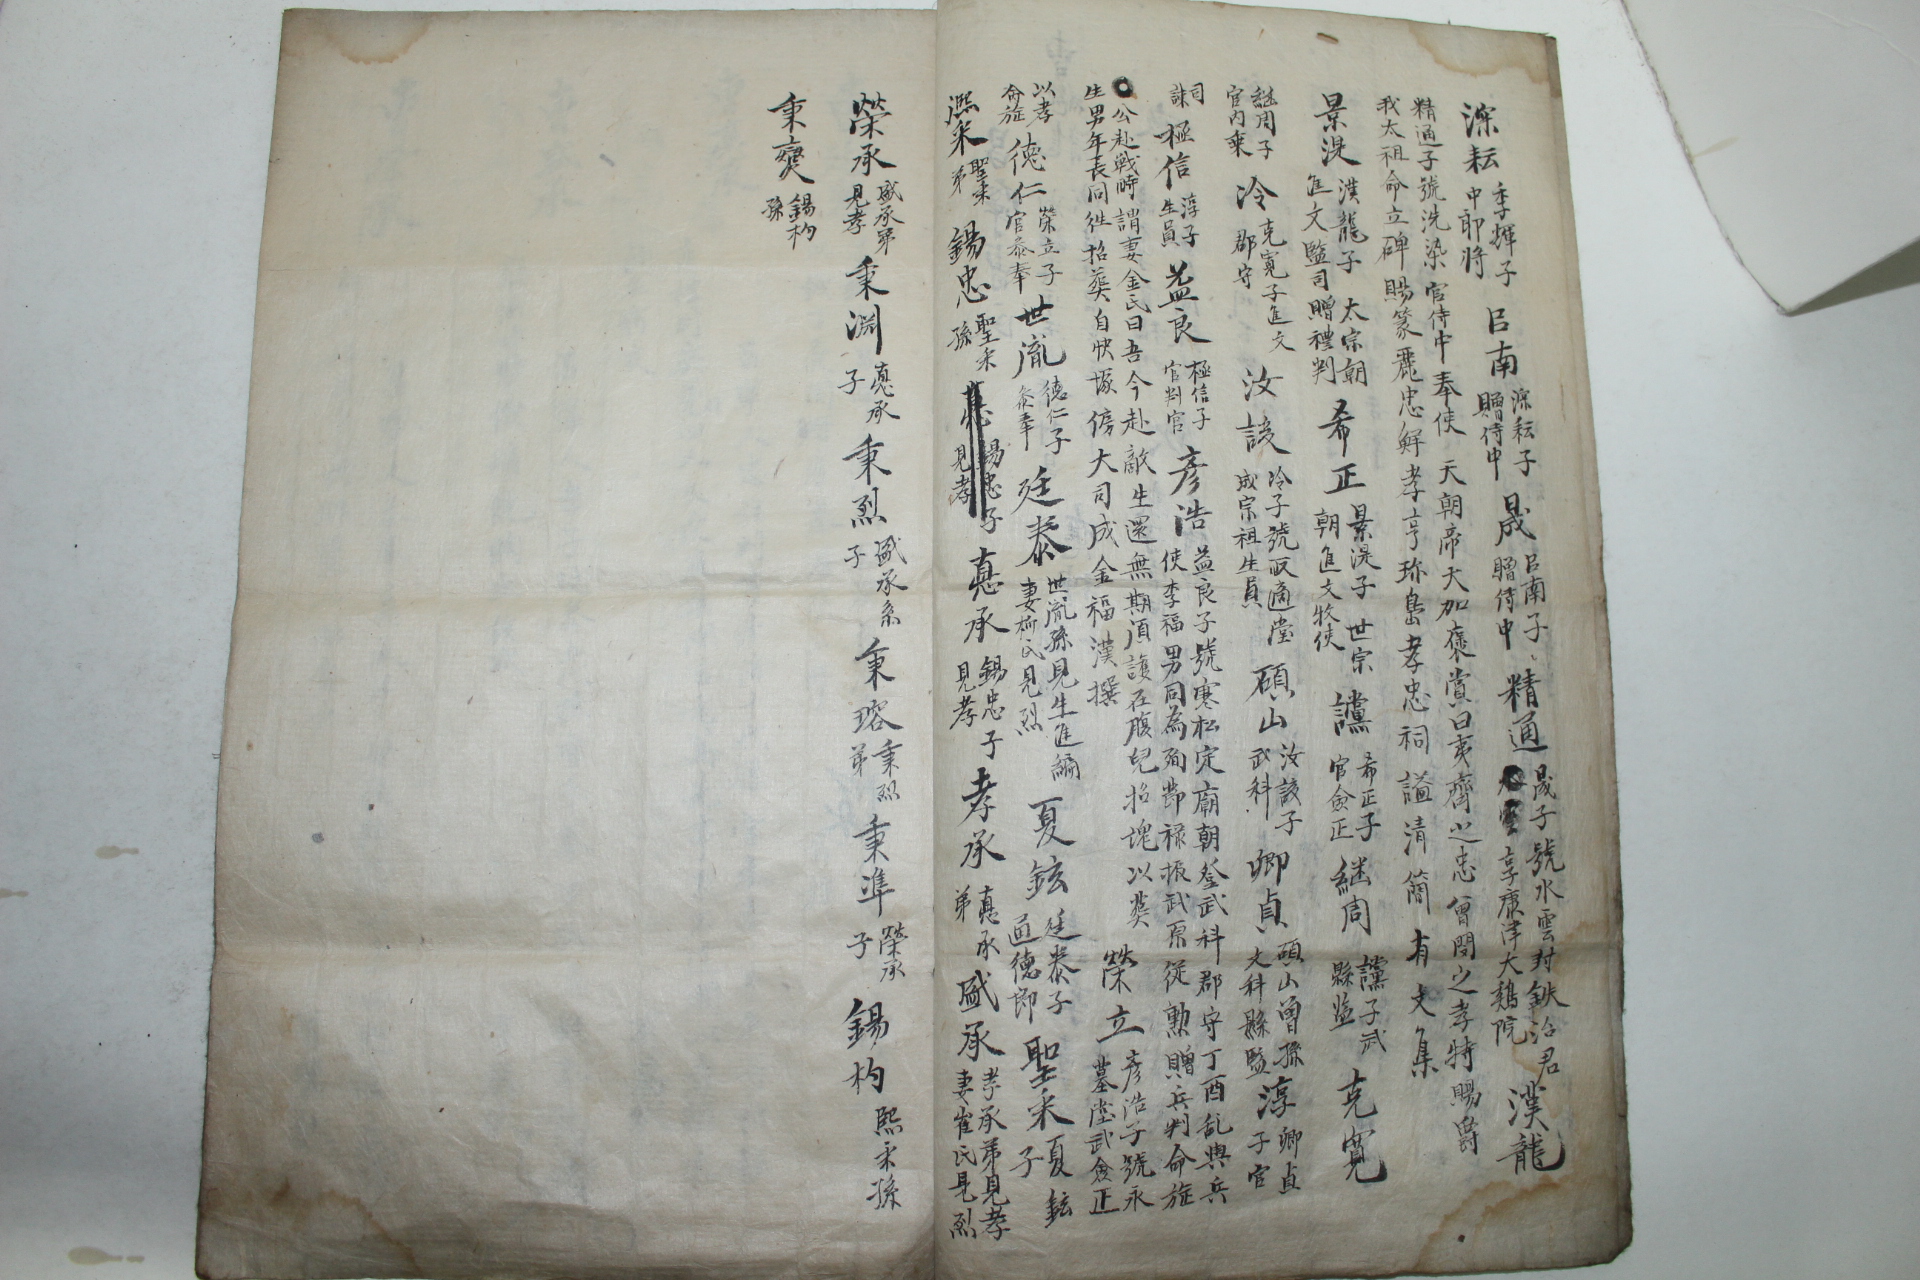 深耘 季輝子 中郎將 呂南 深耘子 贈侍中 晟 呂南子 贈侍中 精通 晟子 號水雲 封鉄治君 享康津大鷄院 漢龍
精通子 號洗染 官侍中 奉使 天朝帝大加褒賞曰夷齊之忠曾閔之孝特賜爵
我太祖命立碑賜篆麗忠鮮孝享珎島孝忠祠 謚清簡 有文集
景湜 漢龍子 太宗朝 進文監司贈禮判 希正 景湜子 世宗朝進文牧使 讜 希正子 官僉正 継周 讜子武 縣監 克寛
継周子 官内乘 冷 克寛子進文 郡守 汝諼 冷子號取適堂 成宗祖生員 碩山 汝諼子 武科 卿貞 碩山曽孫 文科縣監 淳 卿貞子官
司諫 極信 淳子 生員 益良 極信子 官判官 彦浩 益良子號寒松定廟朝登武科郡守丁酉乱與兵
使李福男同為殉節祿振武原從勲贈兵判命旋
公赴戦時謂妻金氏曰吾今赴敵生還無期湏護在腹兒招塊以葬
生男年長同徃招葵自怏塚傍大司成金福漢撰 榮立 彦浩子號永慕堂武僉正
以孝命旋 德仁 榮立子 官叅奉 世胤 德仁子 叅奉 廷泰 世胤孫見生進編 妻柳氏見烈 夏鉉 廷泰子 通德郎 聖采 夏鉉子
熈采 聖采弟 錫忠 聖采孫 錫忠子 見孝 悳承 錫忠子 見孝 孝承 悳承弟 盛承 孝承弟見孝 妻崔氏見烈
榮承 盛承弟 見孝 秉淵 悳承子 秉烈 盛承系子 秉瑢 秉烈弟 秉準 榮承子 錫杓 熙采孫
秉夔 錫杓孫